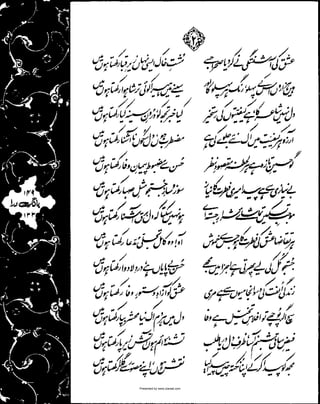 عشق کی آشفتگی نے کر دیا صحرا جسے مشتِ خاک ایسی نہاں زیرِ قبا رکھتا ہوں میں
ہیں ہزاروں اس کے پہلو، رنگ ہر پہلو کا اور سینے میں ہیرا کوئی ترشا ہوا رکھتا ہوں میں
دل نہیں شاعر کا، ہے کیفیتوں کی رستخیز کیا خبر تجھ کو، درونِ سینہ کیا رکھتا ہوں میں
آرزو ہر کیفیت میں اک نئے جلوے کی ہے مضطرب ہوں، دل سکوں ناآشنا رکھتا ہوں میں
گو حسینِ تازہ ہے ہر لحظہ مقصودِ نظر حسن سے مضبوط پیمانِ وفا رکھتا ہوں میں
بے نیازی سے ہے پیدا میری فطرت کا نیاز سوز و سازِ جستجو مثلِ صبا رکھتا ہوں میں
موجبِ تسکیں تماشائے شرارِ جستہ اے ہو نہیں سکتا کہ دل برق آشنا رکھتا ہوں میں
ہر تقاضا عشق کی فطرت کا ہو جس سے خموش آہ! وہ کامل تجلی مدعا رکھتا ہوں میں
جستجو کل کی لیے پھرتی ہے اجزا میں مجھے حسن بے پایاں ہے، دردِ لادوا رکھتا ہوں میں
زندگی الفت کی درد انجامیوں سے ہے مری عشق کو آزادِ دستورِ وفا رکھتا ہوں میں
سچ اگر پوچھے تو افلاسِ تخیل ہے وفا دل میں ہر دم اک نیا محشر بپا رکھتا ہوں میں
فیضِ ساقی شبنم آسا، ظرفِ دل دریا طلب تشنۂ دائم ہوں آتش زیرِ پا رکھتا ہوں میں
مجھ کو پیدا کر کے اپنا نکتہ چیں پیدا کیا نقش ہوں، اپنے مصور سے گلا رکھتا ہوں میں
بانگِ درا
Presented by www.ziaraat.com